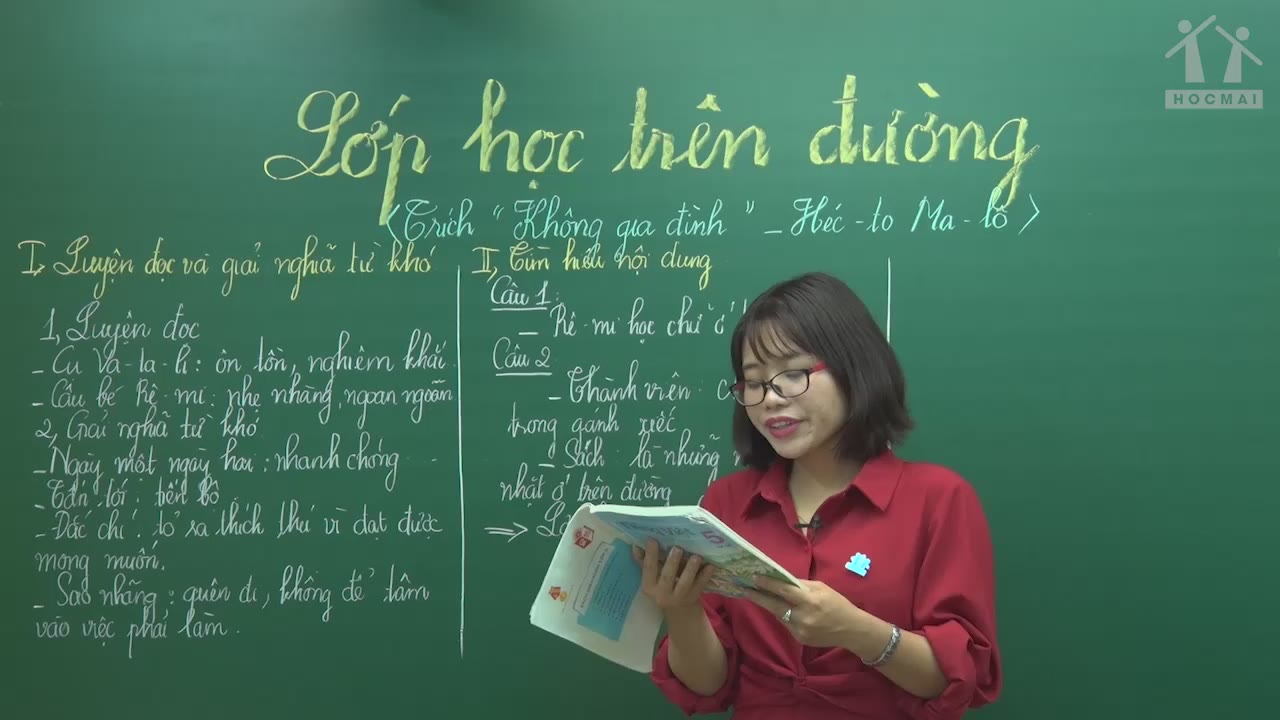 HOCMAI
Lớp học trên đường
<Trích "Không gia đình" - Héc-to Ma-lô>
I, Luyện đọc và giải nghĩa từ khó
1, Luyện đọc
- Cụ Vi-ta-li: ôn tồn, nghiêm khắc
- Cậu bé Rê-mi: nhẹ nhàng, ngoan ngoãn
2, Giải nghĩa từ khó
- Ngày một ngày hai: nhanh chóng
- Tấn tới: tiến bộ
- Đắc chí: tỏ ra thích thú vì đạt được
mong muốn.
- Sao nhãng: quên đi, không để tâm
vào việc phải làm.
II, Tìm hiểu nội dung
Câu 1:
- Rê-mi học chữ ở
Câu 2
- Thành viên:
trong gánh xiếc
- Sách: là những
nhặt ở trên đường
=> Lớ
Tiếng Việt 5